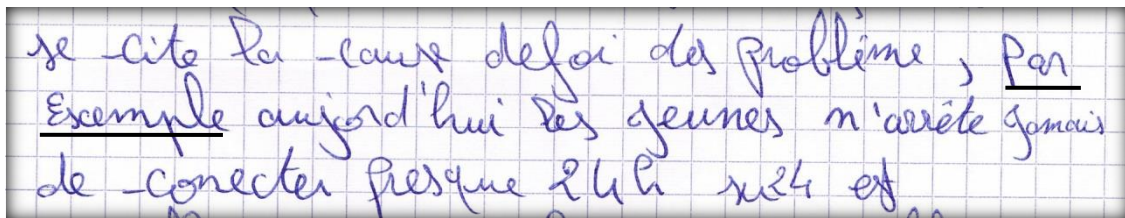 se cite la cause defoi des problème, Par
Exemple aujord'hui les jeunes n'arrête jamais
de conecter presque 24h su24 et